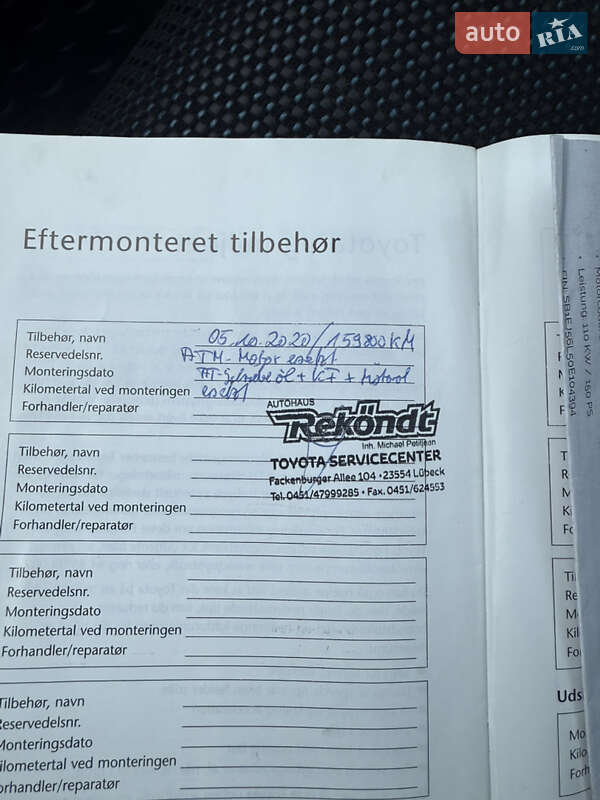 auto RIA.com
Eftermonteret tilbehør
Tilbehør, navn 05.10.2020/159800KM
Reservedelsnr. ATM-Motor ersetzt
Monteringsdato AT-Getriebe öl + KF + Motoröl
Kilometertal ved monteringen ersetzt
Forhandler/reparatør
AUTOHAUS
Reköndt
Inh. Michael Petitjean
TOYOTA SERVICECENTER
Fackenburger Allee 104 · 23554 Lübeck
Tel. 0451/47999285 · Fax. 0451/624553
Tilbehør, navn
Reservedelsnr.
Monteringsdato
Kilometertal ved monteringen
Forhandler/reparatør
Tilbehør, navn
Reservedelsnr.
Monteringsdato
Kilometertal ved monteringen
Forhandler/reparatør
Tilbehør, navn
Reservedelsnr.
Monteringsdato
Kilometertal ved monteringen
Forhandler/reparatør
Leistung: 110 KW / 150 PS
Uds
Mo
Kilo
Forh